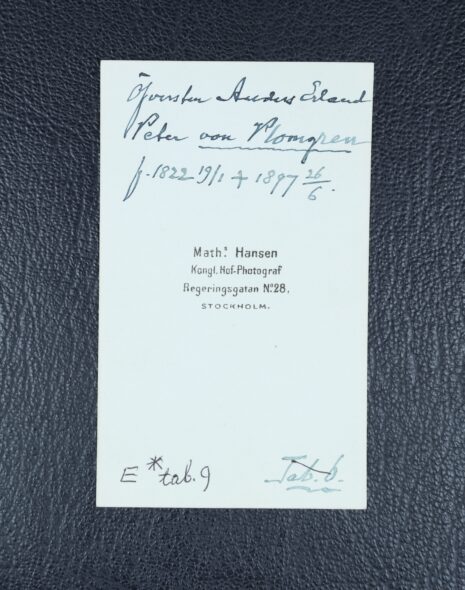 Öfversten Anders Erland
Peter von Plomgren
f. 1822 19/1 + 1897 26/6.
Math.s Hansen
Kongl. Hof-Photograf
Regeringsgatan No 28,
STOCKHOLM.
E * tab. 9
Tab. 6.